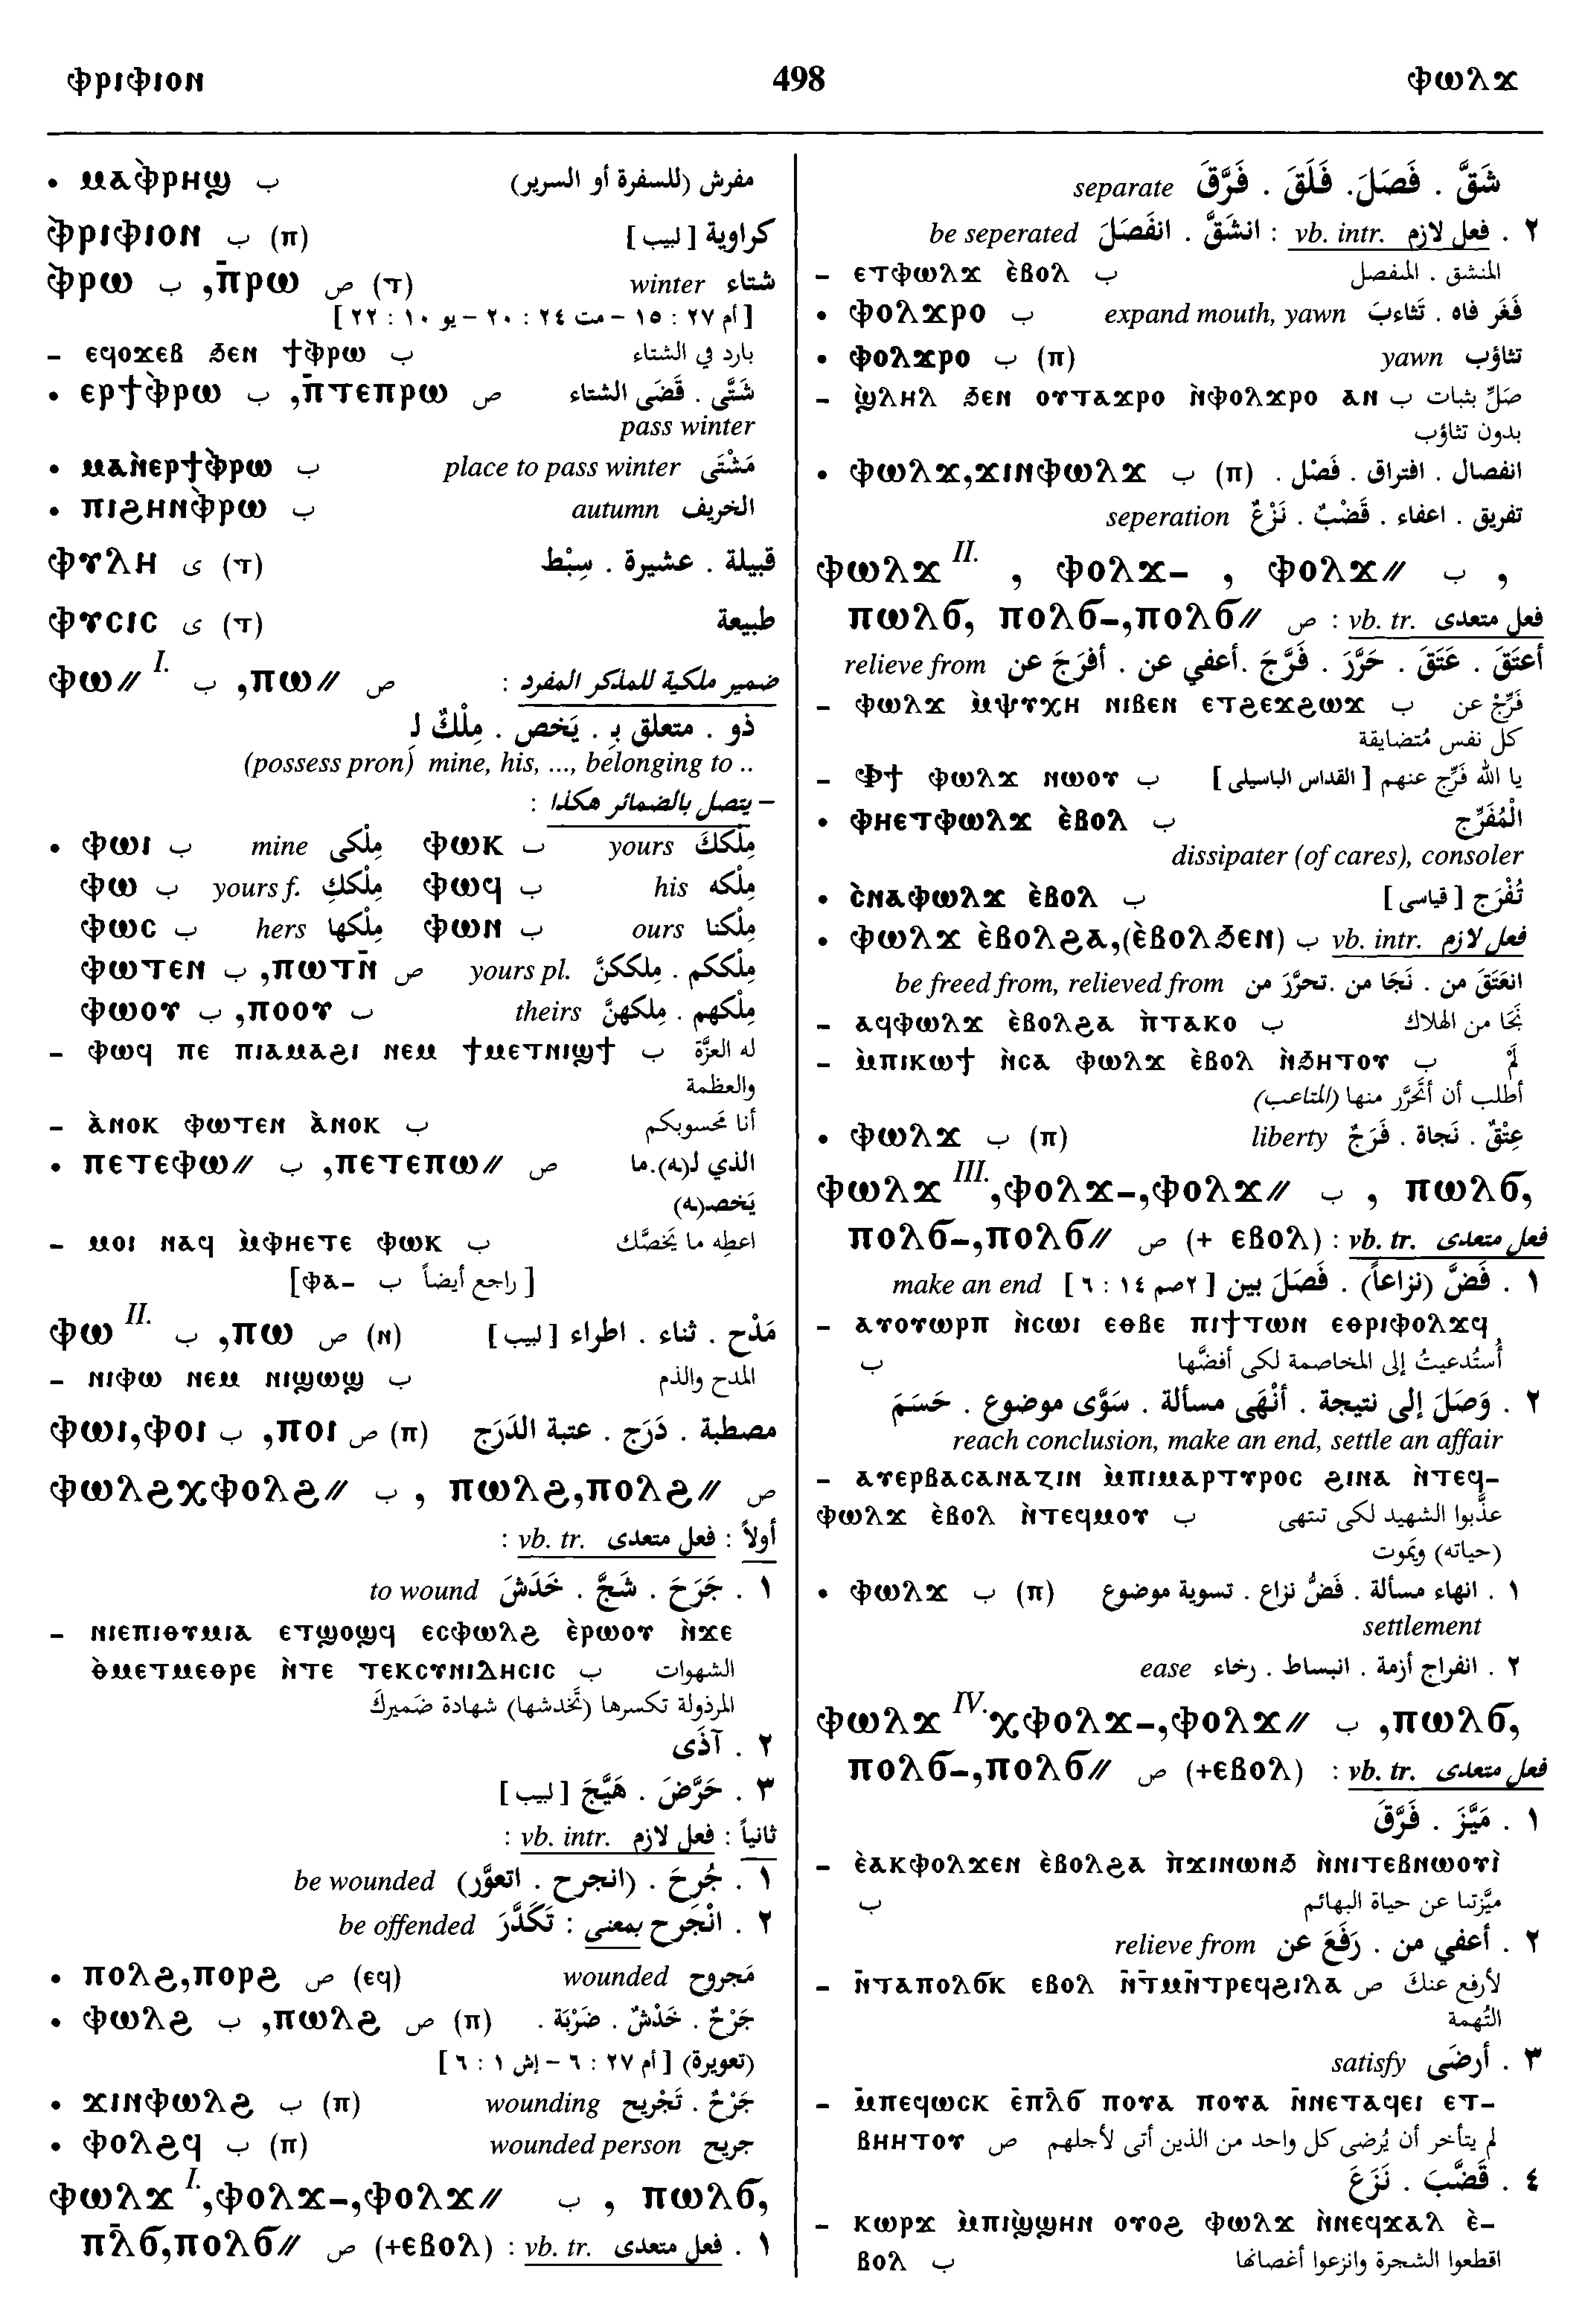 ⲫⲣⲓⲫⲓⲟⲛ 498 ⲫⲱⲗϫ
• ⲙⲁⲫ̀ⲣⲏϣ ب مفرش (للسفرة أو السرير)
ⲫ̀ⲣⲓⲫⲓⲟⲛ ب (ⲡ) كراوية [لبيب]
ⲫ̀ⲣⲱ ب ,ⲡ̄ⲣⲱ ص (ⲧ) شتاء winter
[أم ٢٧ : ١٥ – مت ٢٤ : ٢٠ – يو ١٠ : ٢٢]
– ⲉϥⲟϫⲉⲃ ϧⲉⲛ ϯⲫ̀ⲣⲱ ب بارد في الشتاء
• ⲉⲣϯⲫ̀ⲣⲱ ب ,ⲡ̄ⲧⲉⲡⲣⲱ ص شَتَّى . قَضَى الشتاء
pass winter
• ⲙⲁⲛ̀ⲉⲣϯⲫ̀ⲣⲱ ب place to pass winter مَشْتَى
• ⲡⲓϩⲏⲛⲫ̀ⲣⲱ ب autumn الخريف
ⲫⲩⲗⲏ ى (ⲧ) قبيلة . عشيرة . سِبْط
ⲫⲩⲥⲓⲥ ى (ⲧ) طبيعة
ⲫⲱ// I. ب ,ⲡⲱ// ص ضمير ملكية للمذكر المفرد :
ذو . متعلق بِـ . يَخص . مِلْكٌ لِـ
(possess pron) mine, his, ..., belonging to ..
– يتصل بالضمائر هكذا :
• ⲫⲱⲓ ب mine مِلْكى ⲫⲱⲕ ب yours مِلْككَ
ⲫⲱ ب yours f. مِلْككِ ⲫⲱϥ ب his مِلْكه
ⲫⲱⲥ ب hers مِلْكها ⲫⲱⲛ ب ours مِلْكنا
ⲫⲱⲧⲉⲛ ب ,ⲡⲱⲧⲛ̄ ص yours pl. مِلْككم . مِلككنَّ
ⲫⲱⲟⲩ ب ,ⲡⲟⲟⲩ ب theirs مِلْكهم . مِلكهنَّ
– ⲫⲱϥ ⲡⲉ ⲡⲓⲁⲙⲁϩⲓ ⲛⲉⲙ ϯⲙⲉⲧⲛⲓϣϯ ب له العزَّة
والعظمة
– ⲁ̀ⲛⲟⲕ ⲫⲱⲧⲉⲛ ⲁ̀ⲛⲟⲕ ب أنا محسوبكم
• ⲡⲉⲧⲉⲫⲱ// ب ,ⲡⲉⲧⲉⲡⲱ// ص الذي لـ(ـه).ما
يَخصـ(ـه)
– ⲙⲟⲓ ⲛⲁϥ ⲙ̀ⲫⲏⲉⲧⲉ ⲫⲱⲕ ب اعطِه ما يَخصَّك
[راجع أيضاً ب ⲫⲁ-]
ⲫⲱ II. ب ,ⲡⲱ ص (ⲛ) مَدْح . ثناء . اطراء [لبيب]
– ⲛⲓⲫⲱ ⲛⲉⲙ ⲛⲓϣⲱϣ ب المدح والذم
ⲫⲱⲓ,ⲫⲟⲓ ب ,ⲡⲟⲓ ص (ⲡ) مصطبة . دَرَج . عتبة الدَرَج
ⲫⲱⲗϩⲭⲫⲟⲗϩ// ب , ⲡⲱⲗϩ,ⲡⲟⲗϩ// ص
أولاً : فعل متعدى vb. tr. :
١ . جَرَحَ . شَجَّ . خَدَشَ to wound
– ⲛⲓⲉⲡⲓⲑⲩⲙⲓⲁ ⲉⲧϣⲟϣϥ ⲉⲥⲫⲱⲗϩ ⲉ̀ⲣⲱⲟⲩ ⲛ̀ϫⲉ
ⲑ̀ⲙⲉⲧⲙⲉⲑⲣⲉ ⲛ̀ⲧⲉ ⲧⲉⲕⲥⲩⲛⲓⲇⲏⲥⲓⲥ ب الشهوات
المرذولة تكسرها (تَخدشها) شهادة ضَميركَ
٢ . آذَى
٣ . حَرَّضَ . هَيَّجَ [لبيب]
ثانياً : فعل لازم vb. intr. :
١ . جُرِحَ . (انجرح . اتعوَّر) be wounded
٢ . انْجَرح بمعنى : تَكَدَّرَ be offended
• ⲡⲟⲗϩ,ⲡⲟⲣϩ ص (ⲉϥ) wounded مَجروح
• ⲫⲱⲗϩ ب ,ⲡⲱⲗϩ ص (ⲡ) جَرْحٌ . خَدْشٌ . ضَرْبَة .
(تعويرة) [أم ٢٧ : ٦ – إش ١ : ٦]
• ϫⲓⲛⲫⲱⲗϩ ب (ⲡ) wounding جَرْحٌ . تَجْرِيح
• ⲫⲟⲗϩϥ ب (ⲡ) wounded person جريح
ⲫⲱⲗϫ I.,ⲫⲟⲗϫ-,ⲫⲟⲗϫ// ب , ⲡⲱⲗϭ,
ⲡⲗ̄ϭ,ⲡⲟⲗϭ// ص (+ⲉⲃⲟⲗ) : vb. tr. فعل متعدى . ١
شَقَّ . فَصَلَ. فَلَقَ . فَرَّقَ separate
٢ . فعل لازم vb. intr. : انشَقَّ . انفَصَلَ be seperated
– ⲉⲧⲫⲱⲗϫ ⲉ̀ⲃⲟⲗ ب المنشق . المنفصل
• ⲫⲟⲗϫⲣⲟ ب expand mouth, yawn فَغَر فاه . تَثاءبَ
• ⲫⲟⲗϫⲣⲟ ب (ⲡ) yawn تثاؤب
– ϣ̀ⲗⲏⲗ ϧⲉⲛ ⲟⲩⲧⲁϫⲣⲟ ⲛ̀ⲫⲟⲗϫⲣⲟ ⲁⲛ ب صَلِّ بثبات
بدون تثاؤب
• ⲫⲱⲗϫ,ϫⲓⲛⲫⲱⲗϫ ب (ⲡ) انفصال . افتراق . فَصْل .
تفريق . اعفاء . قَضْبٌ . نَزْعٌ seperation
ⲫⲱⲗϫ II. , ⲫⲟⲗϫ- , ⲫⲟⲗϫ// ب ,
ⲡⲱⲗϭ, ⲡⲟⲗϭ-,ⲡⲟⲗϭ// ص : vb. tr. فعل متعدى
أعتَقَ . عَتَقَ . حَرَّرَ . فَرَّجَ .أعفي عن . أفرَجَ عن relieve from
– ⲫⲱⲗϫ ⲙ̀ⲯⲩⲭⲏ ⲛⲓⲃⲉⲛ ⲉⲧϩⲉϫϩⲱϫ ب فَرِّجْ عن
كل نفس مُتضايقة
– Ⲫϯ ⲫⲱⲗϫ ⲛⲱⲟⲩ ب يا الله فَرِّج عنهم [القداس الباسيلى]
• ⲫⲏⲉⲧⲫⲱⲗϫ ⲉ̀ⲃⲟⲗ ب الْمُفَرِّج
dissipater (of cares), consoler
• ⲥ̀ⲛⲁⲫⲱⲗϫ ⲉ̀ⲃⲟⲗ ب تُفْرَج [قياسى]
• ⲫⲱⲗϫ ⲉ̀ⲃⲟⲗϩⲁ,(ⲉ̀ⲃⲟⲗϧⲉⲛ) ب vb. intr. فعل لازم
انعَتَقَ من . نَجَا من .تحرَّرَ من be freed from, relieved from
– ⲁϥⲫⲱⲗϫ ⲉ̀ⲃⲟⲗϩⲁ ⲡ̀ⲧⲁⲕⲟ ب نَجَا من الهلاك
– ⲙ̀ⲡⲓⲕⲱϯ ⲛ̀ⲥⲁ ⲫⲱⲗϫ ⲉ̀ⲃⲟⲗ ⲛ̀ϧⲏⲧⲟⲩ ب لَمْ
أطلب أن أتَحرَّر منها (المتاعب)
• ⲫⲱⲗϫ ب (ⲡ) liberty عِتْقٌ . نَجاة . فَرَجٌ
ⲫⲱⲗϫ III.,ⲫⲟⲗϫ-,ⲫⲟⲗϫ// ب , ⲡⲱⲗϭ,
ⲡⲟⲗϭ-,ⲡⲟⲗϭ// ص (+ ⲉⲃⲟⲗ) : vb. tr. فعل متعدى
١ . فَضَّ (نزاعاً) . فَصَلَ بين [٢صم ١٤ : ٦] make an end
– ⲁⲩⲟⲩⲱⲣⲡ ⲛ̀ⲥⲱⲓ ⲉⲑⲃⲉ ⲡⲓϯⲧⲱⲛ ⲉⲑⲣⲓⲫⲟⲗϫϥ
ب أُستُدعيتُ إلى المخاصمة لكى أفضَّها
٢ . وَصَلَ إلى نتيجة . أنْهَى مسألة . سَوَّى موضوع . حَسَمَ
reach conclusion, make an end, settle an affair
– ⲁⲩⲉⲣⲃⲁⲥⲁⲛⲁⲍⲓⲛ ⲙ̀ⲡⲓⲙⲁⲣⲧⲩⲣⲟⲥ ϩⲓⲛⲁ ⲛ̀ⲧⲉϥ-
ⲫⲱⲗϫ ⲉ̀ⲃⲟⲗ ⲛ̀ⲧⲉϥⲙⲟⲩ ب عذَّبوا الشهيد لكى تنتهى
(حياته) ويَموت
• ⲫⲱⲗϫ ب (ⲡ) ١ . انهاء مسألة . فَضُّ نزاع . تسوية موضوع
settlement
٢ . انفراج أزمة . انبساط . رخاء ease
ⲫⲱⲗϫ IV.ⲭⲫⲟⲗϫ-,ⲫⲟⲗϫ// ب ,ⲡⲱⲗϭ,
ⲡⲟⲗϭ-,ⲡⲟⲗϭ// ص (+ⲉⲃⲟⲗ) : vb. tr. فعل متعدى
١ . مَيَّزَ . فَرَّقَ
– ⲉ̀ⲁⲕⲫⲟⲗϫⲉⲛ ⲉ̀ⲃⲟⲗϩⲁ ⲡ̀ϫⲓⲛⲱⲛϧ ⲛ̀ⲛⲓⲧⲉⲃⲛⲱⲟⲩⲓ̀
ب ميَّزتنا عن حياة البهائم
٢ . أعفي من . رَفَعَ عن relieve from
– ⲛ̄ⲧⲁⲡⲟⲗϭⲕ ⲉⲃⲟⲗ ⲛ̄ⲧⲙⲛ̄ⲧⲣⲉϥϩⲓⲗⲁ ص لأرفع عنكَ
التُهمة
٣ . أرضَى satisfy
– ⲙ̄ⲡⲉϥⲱⲥⲕ ⲉ̄ⲡⲗ̄ϭ ⲡⲟⲩⲁ ⲡⲟⲩⲁ ⲛ̄ⲛⲉⲧⲁϥⲉⲓ ⲉⲧ-
ⲃⲏⲏⲧⲟⲩ ص لم يتأخر أن يُرضى كل واحد من الذين أتى لأجلهم
٤ . قَضَّبَ . نَزَعَ
– ⲕⲱⲣϫ ⲙ̀ⲡⲓϣ̀ϣⲏⲛ ⲟⲩⲟϩ ⲫⲱⲗϫ ⲛ̀ⲛⲉϥϫⲁⲗ ⲉ̀-
ⲃⲟⲗ ب اقطعوا الشجرة وانزعوا أغصانَها